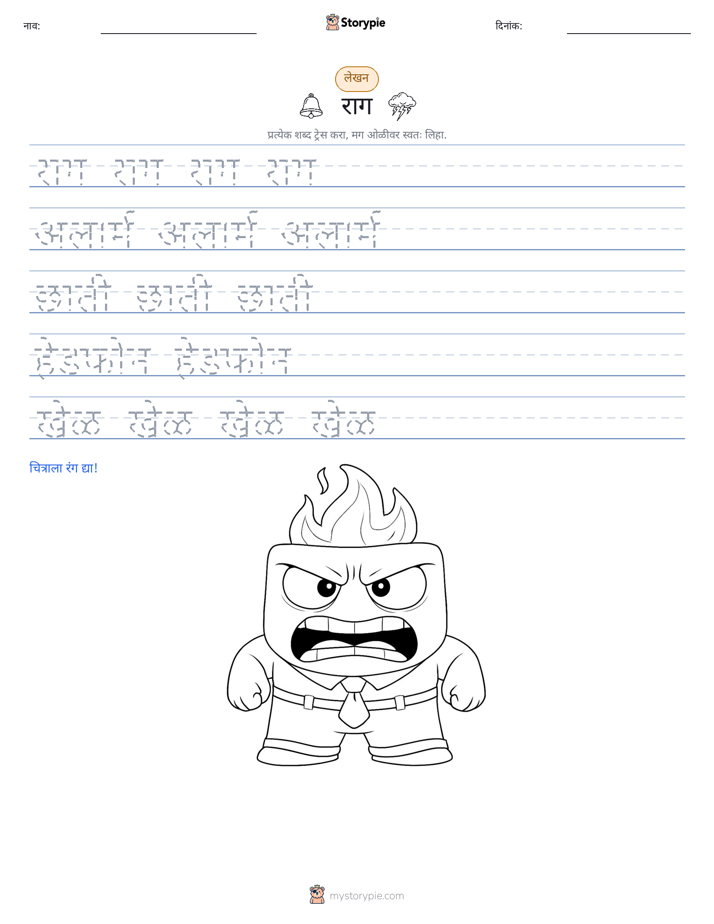 नाव:
Storypie
दिनांक:
लेखन
राग
प्रत्येक शब्द ट्रेस करा, मग ओळीवर स्वतः लिहा.
राग राग राग राग
अलार्म अलार्म अलार्म
छाती छाती छाती
हेडफोन हेडफोन
खेळ खेळ खेळ खेळ
चित्राला रंग द्या!
mystorypie.com